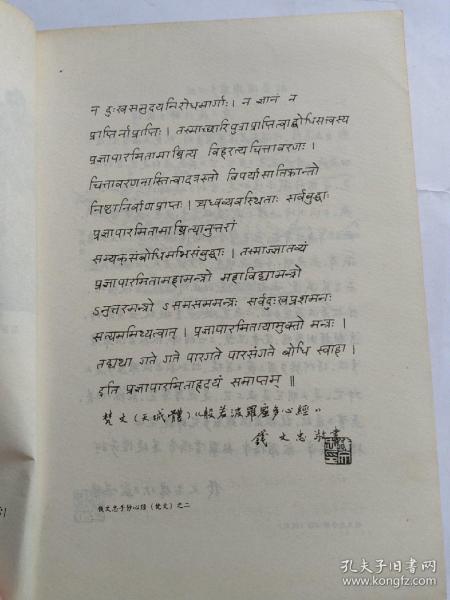 न दुःखसमुदयनिरोधमार्गाः। न ज्ञानं न
प्राप्तिर्नाप्राप्तिः। तस्माच्छारिपुत्राप्राप्तित्वाद्बोधिसत्त्वस्य
प्रज्ञापारमितामाश्रित्य विहरत्यचित्तावरणः।
चित्तावरणनास्तित्वादत्रस्तो विपर्यासातिक्रान्तो
निष्ठानिर्वाणप्राप्तः। त्र्यध्वव्यवस्थिताः सर्वबुद्धाः
प्रज्ञापारमितामाश्रित्यानुत्तरां
सम्यक्संबोधिमभिसंबुद्धाः। तस्माज्ज्ञातव्यं
प्रज्ञापारमितामहामन्त्रो महाविद्यामन्त्रो
ऽनुत्तरमन्त्रो ऽसमसममन्त्रः सर्वदुःखप्रशमनः
सत्यममिथ्यत्वात्। प्रज्ञापारमितायामुक्तो मन्त्रः।
तद्यथा गते गते पारगते पारसंगते बोधि स्वाहा।
इति प्रज्ञापारमिताहृदयं समाप्तम्॥
梵文(天城體)《般若波羅蜜多心經》
錢文忠敬書
钱文忠手抄心经(梵文)之二
孔夫子旧书网
book.kongfz.com